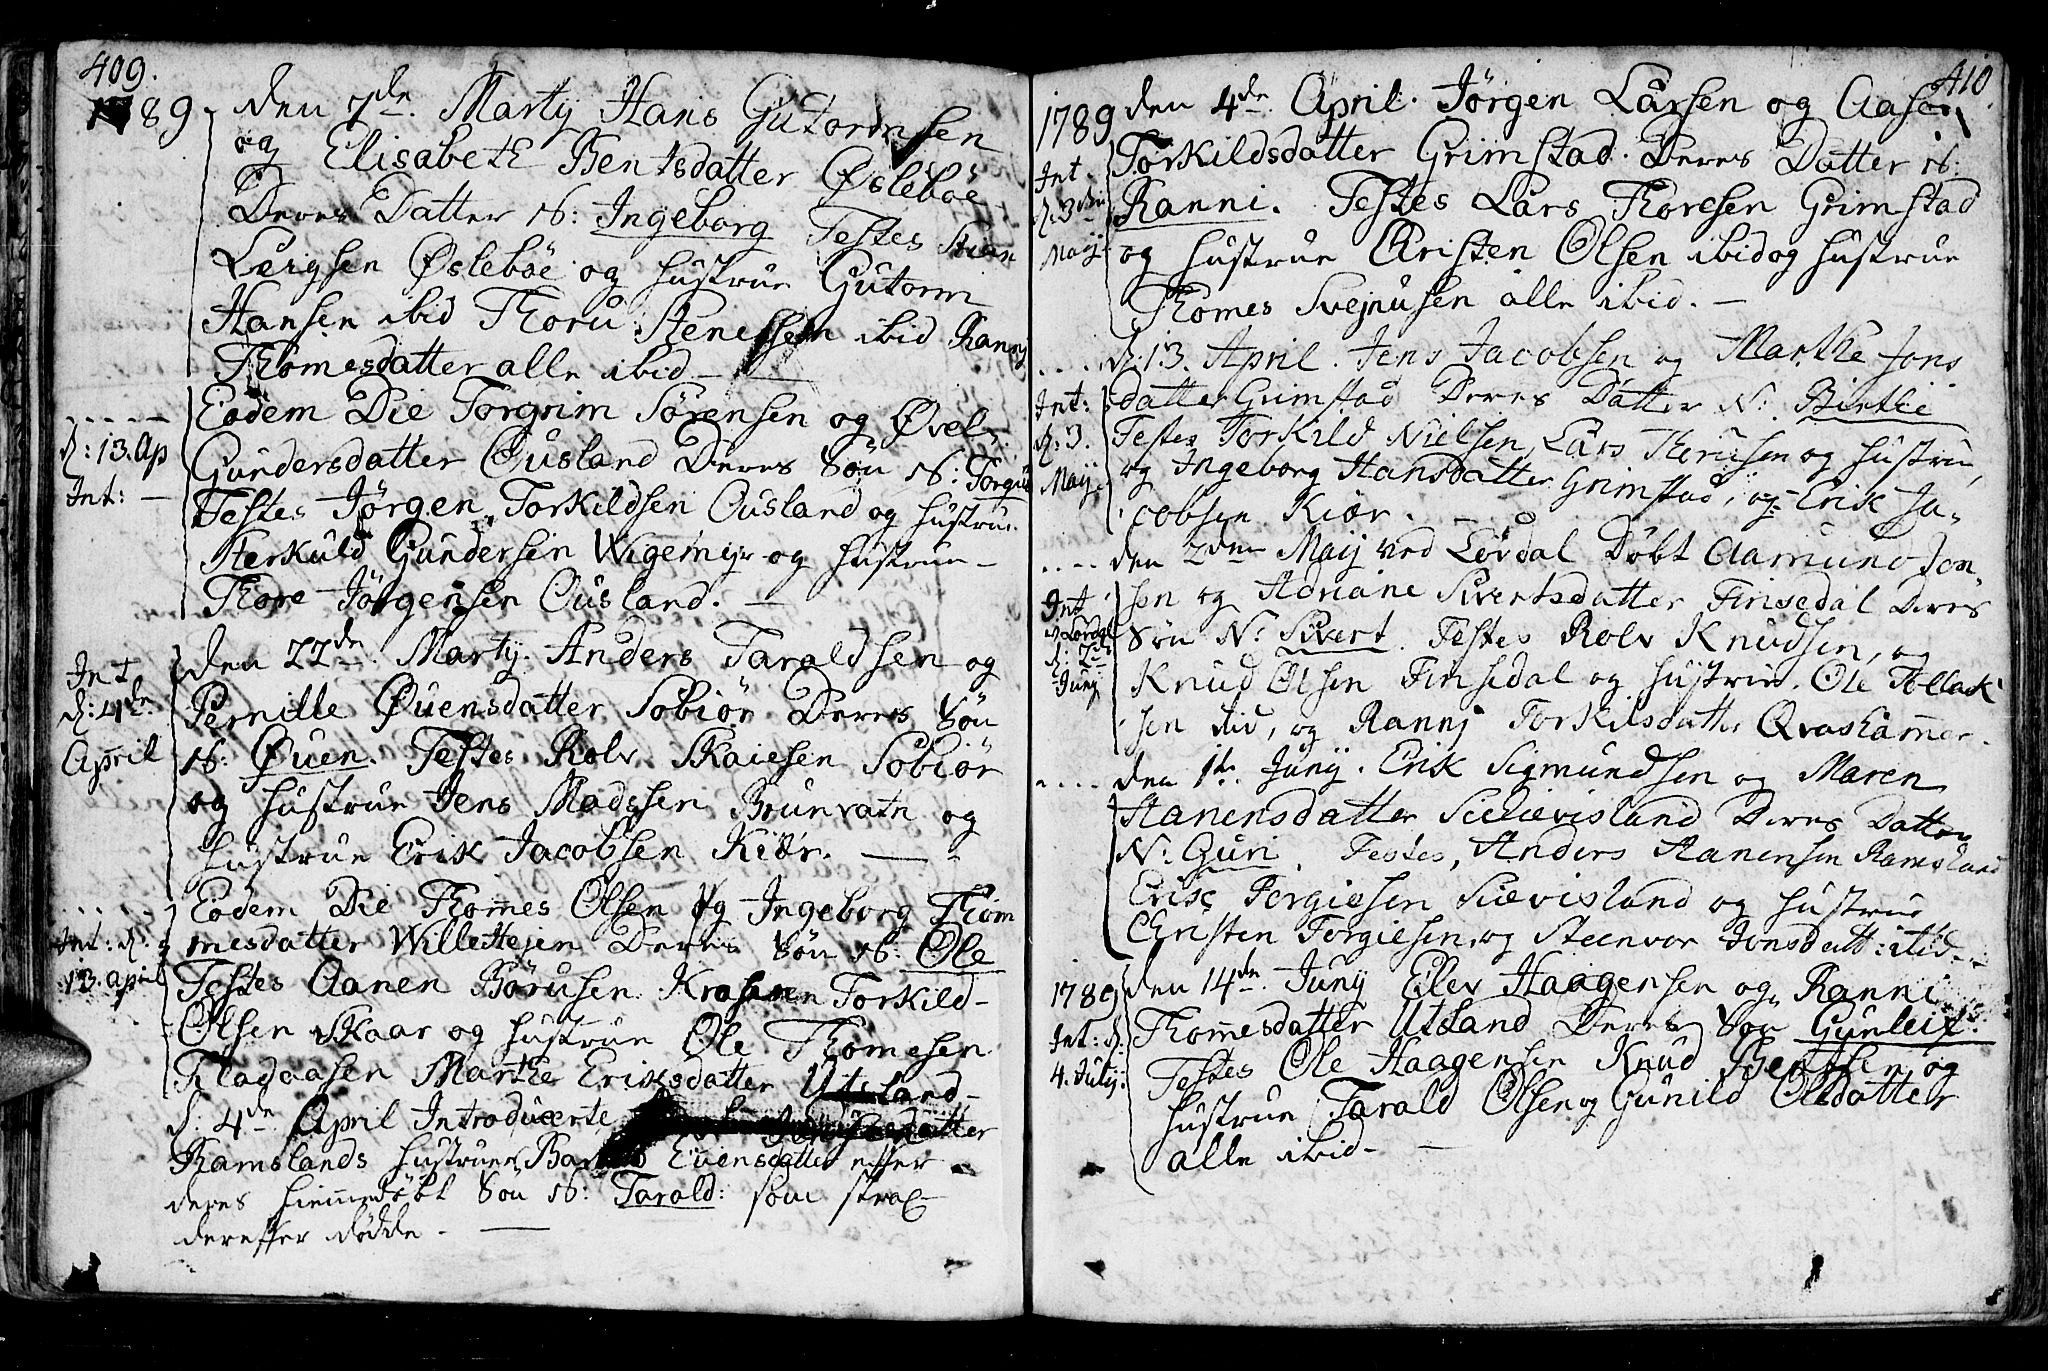 409.
1789. den 7de. Martij Hans Gutormsen
og Elisabeth Bentsdatter Øslebøe
Deres Datter N: Ingeborg Testes Stian
Øslebøe og Hustrue Gutorm
Hansen ibid Thoru Stenessen ibid Ranny
Thomesdatter alle ibid –
Eodem Die Torgrim Sørensen og Øvel
d: 13. Ap
Gundersdatter Ousland Deres Søn N: Torgius
Int: –
Testes Jørgen Torkildsen Ousland og Hustrue
Sterkuld Gundersen Wigemyr og Hustrue –
Thore Jørgensen Ousland. –
Int
den 22de. Martij. Anders Taraldsen og
d: 4de.
Pernille Øuensdatter Sobiør Deres Søn
April
N: Øuen. Testes Rolv Skaiesen Sobiør
og Hustrue Jens Madssen Brunvatn og
Hustrue Erik Jacobsen Kiær. –
Eodem Die Thomes Olsen og Ingeborg Thom
Int: d:
mesdatter Willettejen Deres Søn N: Ole
13. April
Testes Aanen Børusen Torkild-
Olsen Skaar og Hustrue Ole Thomesen
Fladaasen Marthe Eriksdatter Utsland –
d. 4de April Introducerte
Ramslands Hustrue Euensdatter effter
deres hiemmedøbt Søn N: Tarald: som strax
dereffter dødde. –
410.
1789 den 4de. April. Jørgen Larsen og Aase
Int.
Torkildsdatter Grimstad. Deres Datter N:
d. 3die
Ranni. Testes Lars Thoresen Grimstad
Maij
og Hustrue Christen Olsen ibid og Hustrue
Thomes Svejnusen alle ibid. –
d. 13. April. Jens Jacobsen og Marthe Jons
Int:
datter Grimstad Deres Datter N: Birthe
d: 3.
Testes Torkild Nielsen, Lars Thorusen og Hustrue,
Maij
og Ingeborg Hansdatter Grimstad, og Erik Ja-
cobsen Kiær. –
den 2den Maij ved Løvdal Døbt Aamund Jon-
Int
sen og Adriane Sivertsdatter Finsedal Deres
v. Løvdal
Søn N: Sivert. Testes Rolv Knudsen, og
d: 2de
Knud Olsen Finsedal og Hustrue. Ole Tollak
Junij
sen ibid, og Rannj Torkilsdatter Qvashammer.
den 1te. Junij. Erik Sigmundsen og Maren
Aanensdatter Sielievisland Deres Datter
N: Guri. Testes, Anders Aanensen Ramsland
Erik Torgiesen Sievisland og Hustrue
Christen Torgiesen, og Steenvor Jonsdatt: ibid –
1789 den 14de. Juny Elev Haagensen og Ranni
Int: d.
Thomesdatter Utsland Deres Søn Gunleif.
4. July.
Testes Ole Haagensen Knud Bentsen og
Hustrue Tarald Olsen og Gunild Olsdatter
alle ibid –